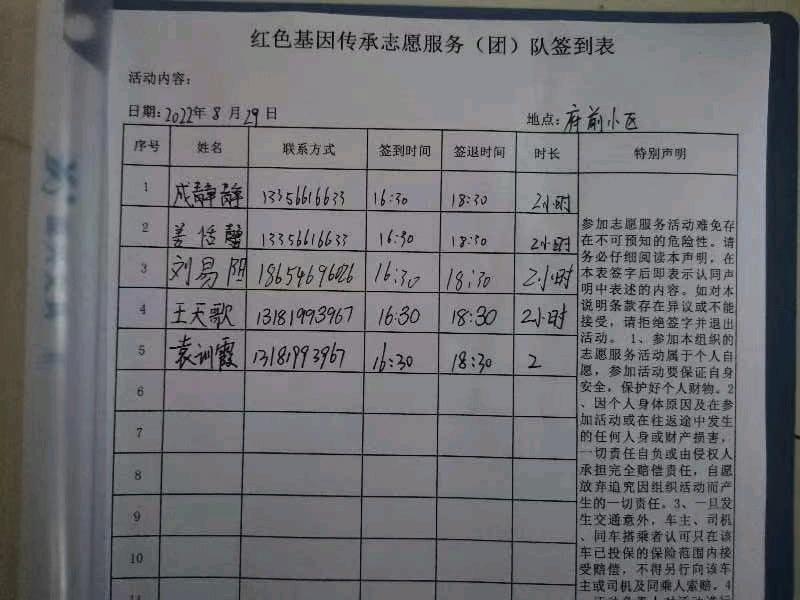 红色基因传承志愿服务（团）队签到表
活动内容：
日期：2022年8月29日
地点：府前小区
序号 姓名 联系方式 签到时间 签退时间 时长 特别声明
1 成静静 13356616633 16:30 18:30 2小时
2 姜恬馨 13356616633 16:30 18:30 2小时
3 刘易阳 18654696026 16:30 18:30 2小时
4 王天歌 13181993967 16:30 18:30 2小时
5 袁训霞 13181993967 16:30 18:30 2
6
7
8
9
10
11
参加志愿服务活动难免存
在不可预知的危险性。请
务必仔细阅读本声明，在
本表签字后即表示认同声
明中表述的内容。如对本
说明条款存在异议或不能
接受，请拒绝签字并退出
活动。1、参加本组织的
志愿服务活动属于个人自
愿，参加活动要保证自身
安全，保护好个人财物。2
、因个人身体原因及在参
加活动或在往返途中发生
的任何人身或财产损害，
一切责任自负或由侵权人
承担完全赔偿责任，自愿
放弃追究因组织活动而产
生的一切责任。3、一旦发
生交通意外，车主、司机
、同车搭乘者认可只在该
车已投保的保险范围内接
受赔偿，不得另行向该车
主或司机及同乘人索赔。4